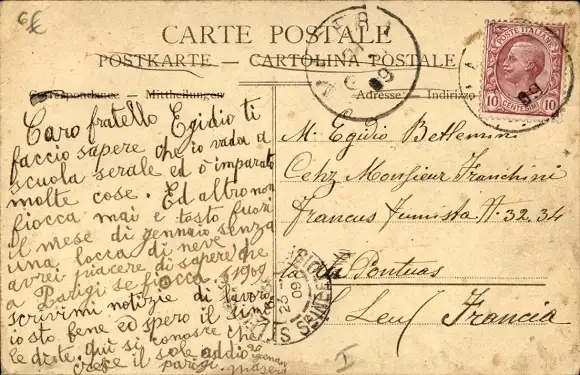 6€
CARTE POSTALE
POSTKARTE — CARTOLINA POSTALE
Correspondance — Mittheilungen
Adresse — Indirizzo
POSTE ITALIANE
10 CENTESIMI 10
09
09
Caro fratello Egidio ti
faccio sapere che io vada a
scuola serale ed ò imparato
molte cose. Ed altro non
fiocca mai e tosto fuori
il mese di gennaio senza
una locca di neve
avrei piacere di sapere che
a Parigi se fiocca 1909
scrivimi notizie di lavoro
io sto bene ed spero il simi
le di te. qui si conosce che
cresce il sole addio
parigi.
M. Egidio Betlemini
Cehz Monsieur Franchini
Francus Fumista N. 32.34
la Pontuas
Francia
23
09
I